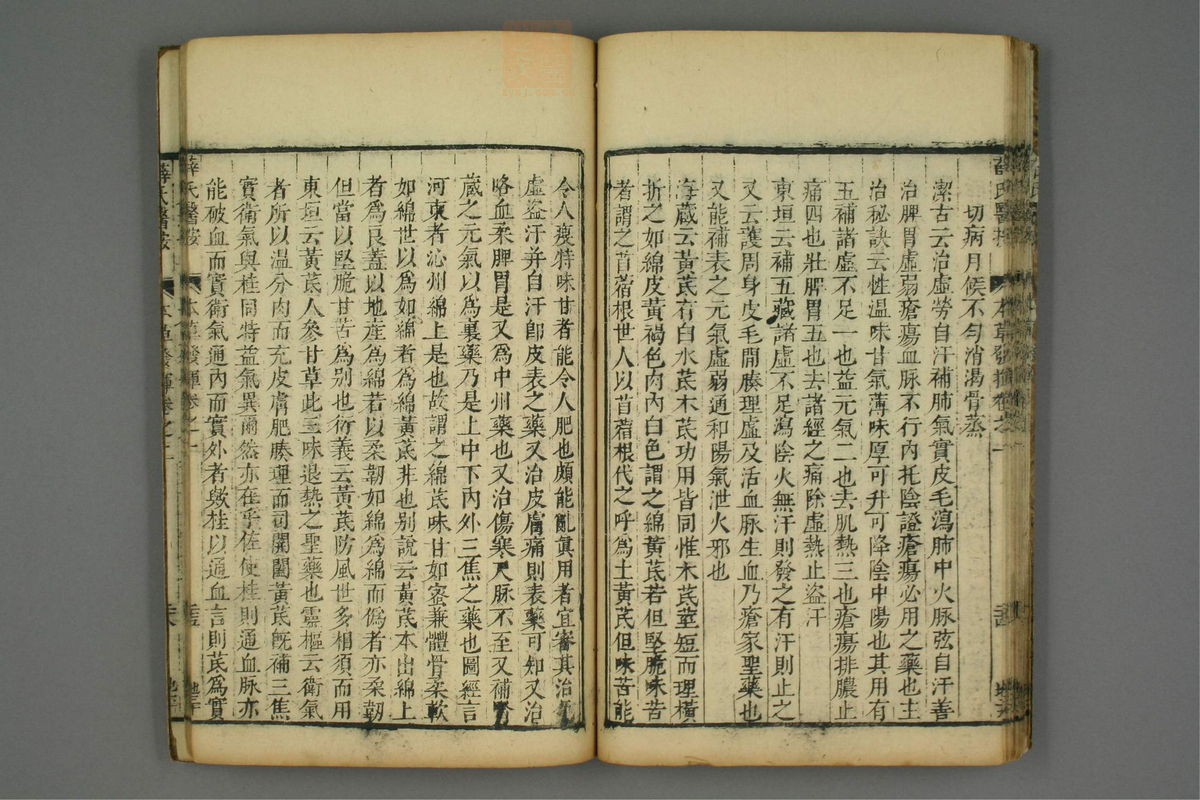 切病月候不勻消渴骨蒸
潔古云治虛勞自汗補肺氣實皮毛瀉肺中火脉弦自汗善
治脾胃虛弱瘡瘍血脉不行內托陰證瘡瘍必用之藥也主
治秘訣云性溫味甘氣薄味厚可升可降陰中陽也其用有
五補諸虛不足一也益元氣二也去肌熱三也瘡瘍排膿止
痛四也壯脾胃五也去諸經之痛除虛熱止盜汗
東垣云補五藏諸虛不足瀉陰火無汗則發之有汗則止之
又云護周身皮毛開腠理虛及活血脉生血乃瘡家聖藥也
又能補表之元氣虛弱通和陽氣泄火邪也
海藏云黃芪有白水芪木芪功用皆同惟木芪莖短而理橫
折之如綿皮黃褐色肉內白色謂之綿黃芪若但堅脆味苦
者謂之苜蓿根世人以苜蓿根代之呼為土黃芪但味苦能
令人瘦特味甘者能令人肥也頗能亂真用者宜審其治氣
虛盜汗并自汗卽皮表之藥又治皮膚痛則表藥可知又治
咯血柔脾胃是又為中州藥也又治傷寒尺脉不至又補腎
藏之元氣以為裏藥乃是上中下內外三焦之藥也圖經言
河東者沁州綿上是也故謂之綿芪味甘如蜜兼體骨柔軟
如綿世以為如綿者為綿黃芪非也別說云黃芪本出綿上
者為良蓋以地產為綿若以柔韌如綿為綿而偽者亦柔韌
但當以堅脆甘苦為别也衍義云黃芪防風世多相須而用
東垣云黃芪人參甘草此三味退熱之聖藥也靈樞云衛氣
者所以溫分肉而充皮膚肥腠理而司開闔黃芪旣補三焦
實衛氣與桂同特益氣異爾然亦在乎佐使桂則通血脉亦
能破血而實衛氣通內而實外者歟桂以通血言則芪為實
薛氏醫按
本草發揮卷之一